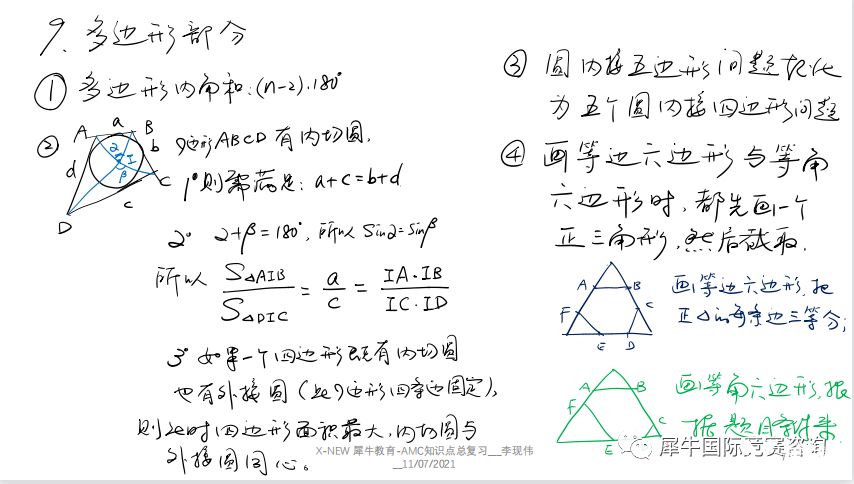 9. 多边形部分
① 多边形内角和:(n-2)·180°
② 四边形ABCD有内切圆,
A a B
b
d
2 I
β
C
c
D
1° 则需满足: a+c=b+d
2° 2+β=180°, 所以 Sin2=Sinβ
所以 S△AIB / S△DIC = a / c = IA·IB / IC·ID
3° 如果一个四边形既有内切圆
也有外接圆(此四边形四条边固定),
则此时四边形面积最大,内切圆与
外接圆同心。
③ 圆内接五边形问题转化
为五个圆内接四边形问题
④ 画等边六边形与等角
六边形时,都先画一个
正三角形,然后截取.
A B
F C
E D
画等边六边形,把
正△的每条边三等分;
A B
F C
E
画等角六边形,根
据题目条件来
犀牛国际竞赛咨询
X-NEW 犀牛教育-AMC知识点总复习__李现伟
__11/07/2021